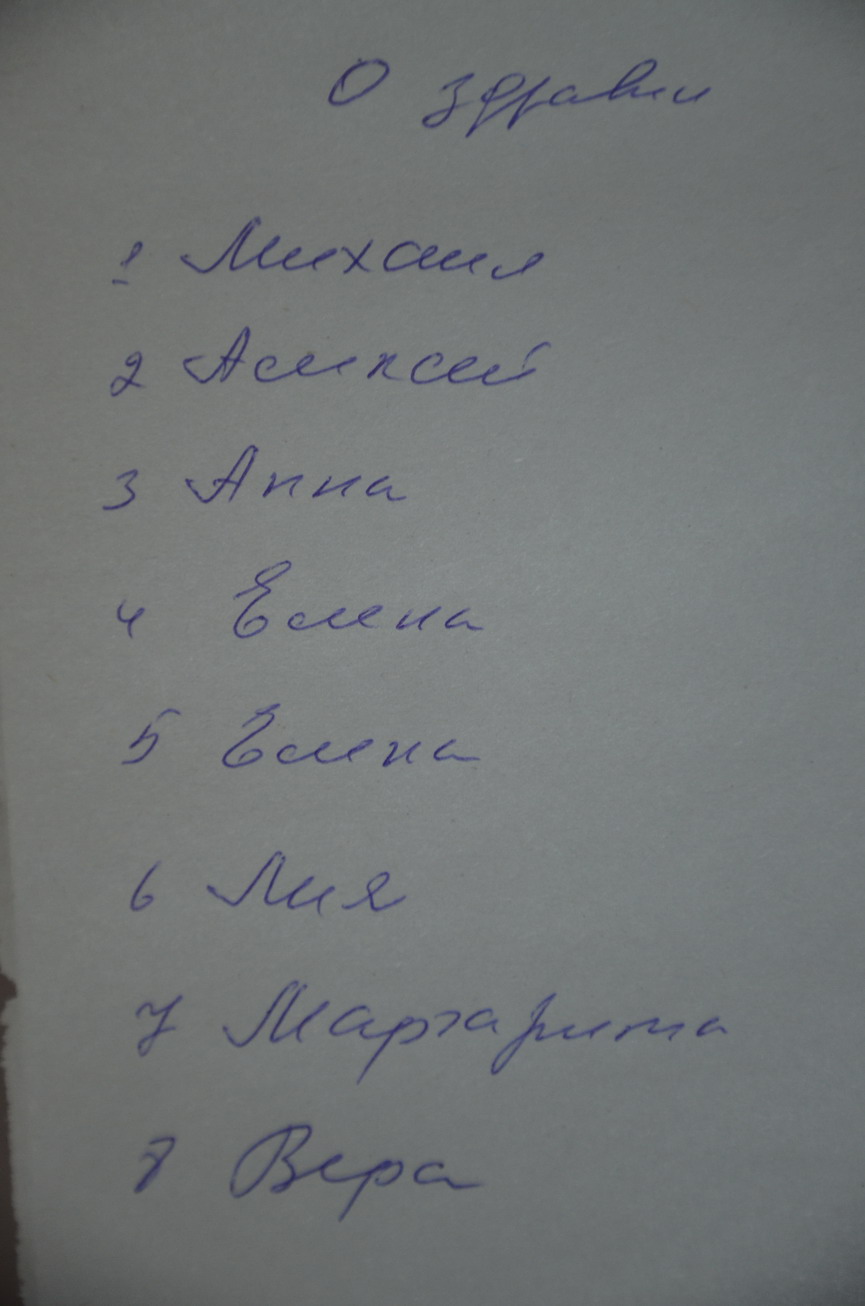 О здравии
1 Михаил
2 Алексей
3 Анна
4 Елена
5 Елена
6 Лия
7 Маргарита
8 Вера